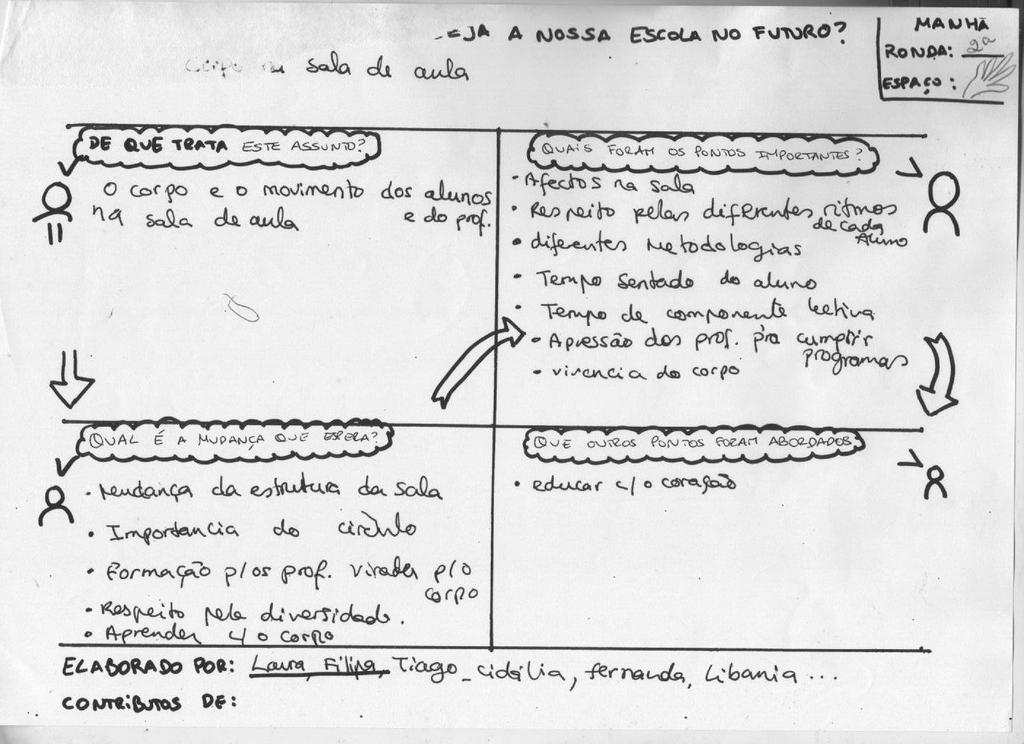 JA A NOSSA ESCOLA NO FUTURO?
MANHÃ
RONDA: 2ª
ESPAÇO:
corpo na sala de aula
DE QUE TRATA ESTE ASSUNTO?
O corpo e o movimento dos alunos
e do prof.
na sala de aula
QUAIS FORAM OS PONTOS IMPORTANTES?
• Afectos na sala
• Respeito pelas diferentes ritmos
de cada
Aluno
• diferentes Metodologias
• Tempo sentado do aluno
• Tempo de componente letiva
• Apressão dos prof. p'ra cumprir
programas
• vivencia do corpo
QUAL É A MUDANÇA QUE ESPERA?
• Mudança da estrutura da sala
• Importancia do circulo
• Formação p/os prof. virada p/o
corpo
• Respeito pela diversidade.
• Aprender c/ o corpo
QUE OUTROS PONTOS FORAM ABORDADOS
• educar c/o coração
ELABORADO POR: Laura, Filipa, Tiago_ cidália, fernanda, Libania ...
CONTRIBUTOS DE: